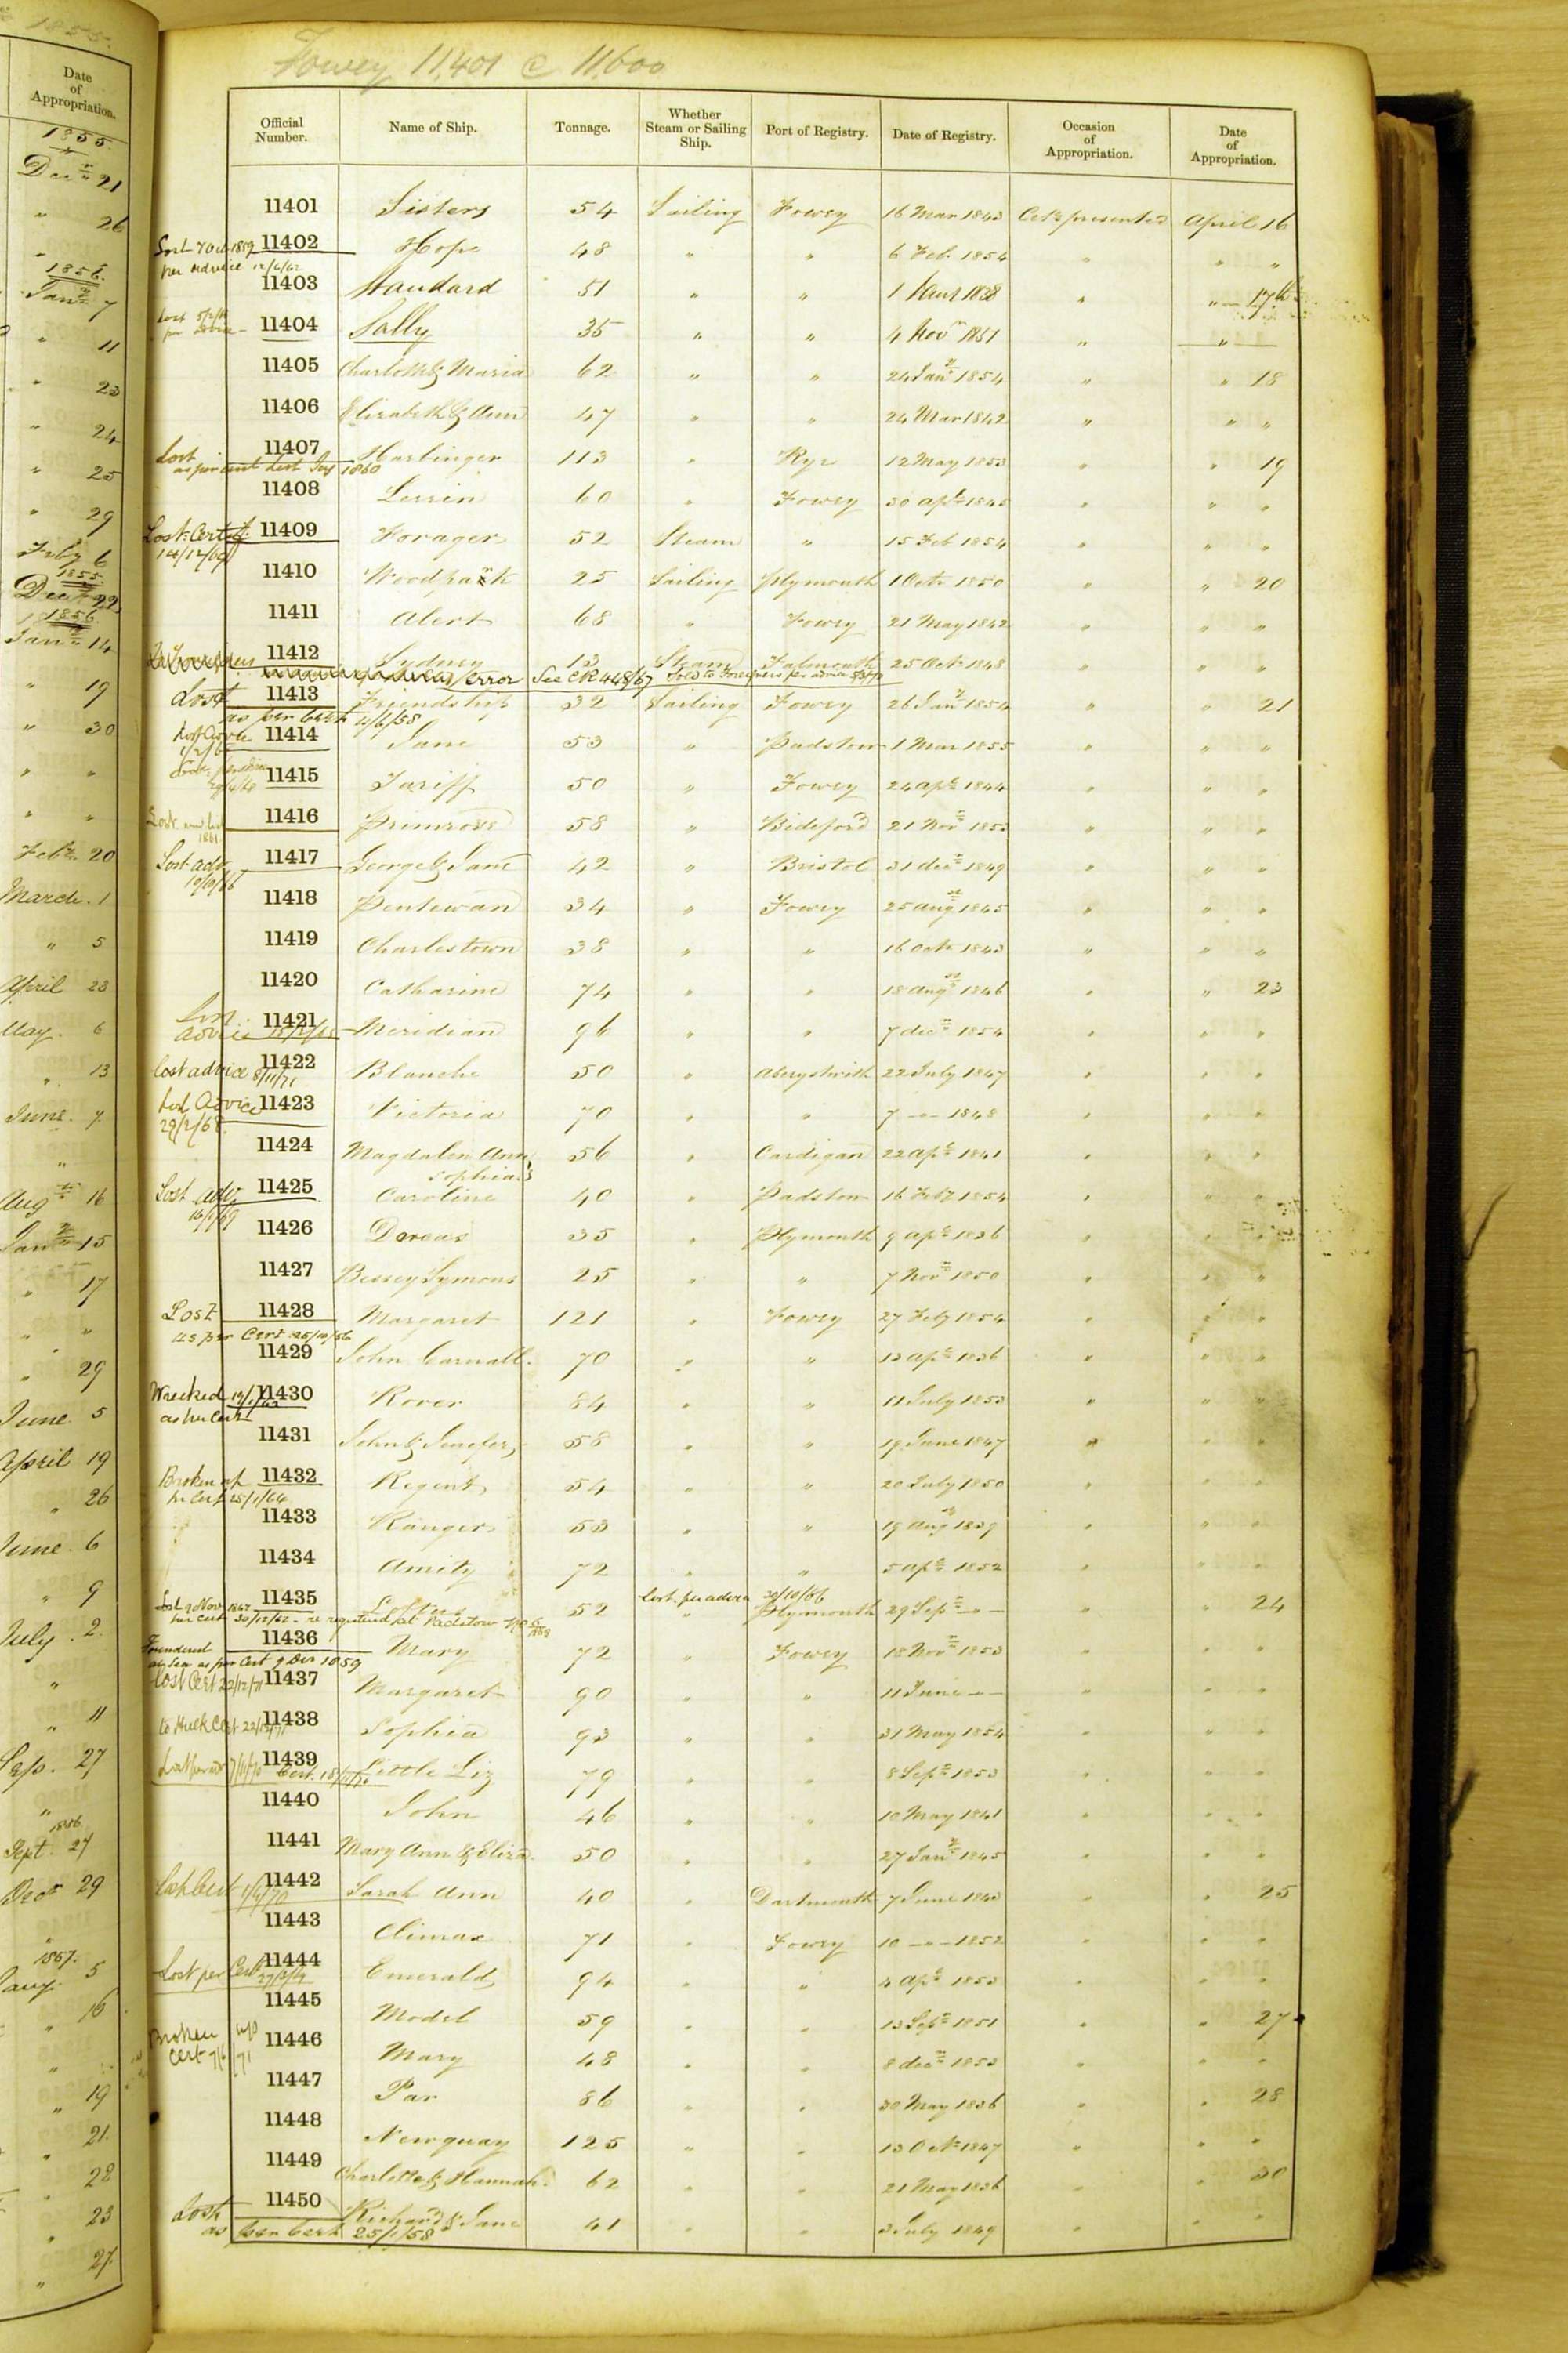 1855
Date of Appropriation.
1855
Decr 21
" 26
1856
Jany 7
" 11
" 23
" 24
" 25
" 29
Feby 6
1855
Decr 22
1856
Jany 14
" 19
" 30
" "
" "
Feby 20
March 1
" 5
April 23
May 6
" 13
June 7
"
Augt 16
Jany 15
" 17
" "
" 29
June 5
April 19
" 26
June 6
" 9
July 2
"
" 11
Sep. 27
"
1856
Sept 27
Decr 29
1857
Jany 5
" 16
"
" 19
" 21
" 28
" 23
" 27
Fowey 11,401 @ 11,600
Official Number. Name of Ship. Tonnage. Whether Steam or Sailing Ship. Port of Registry. Date of Registry. Occasion of Appropriation. Date of Appropriation.
11401 Sisters 54 Sailing Fowey 16 Mar 1843 Certe presented April 16
Lost 7 Oct 1859 11402 Hope 48 " " 6 Feb. 1854 " " "
per advice 12/6/62
11403 Standard 51 " " 1 1838 " " 17th
Lost per advice 11404 Sally 35 " " 4 Novr 1851 " "
11405 Charlotte & Maria 62 " " 24 Jany 1854 " " 18
11406 Elizabeth & Ann 47 " " 24 Mar 1842 " " "
Lost 11407 Harbinger 113 " Rye 12 May 1853 " " 19
as per 1860
11408 Lerrin 60 " Fowey 30 Apl 1845 " " "
Lost Cert 11409 Forager 52 Steam " 15 Feb 1854 " " "
11410 Woodpark 25 Sailing Plymouth 1 Octr 1850 " " 20
11411 Alert 68 " Fowey 21 May 1842 " " "
11412 Sydney 13 Steam Falmouth 25 Octr 1848 " " "
error See CR 448/67 Sold to Foreigners per advice
Lost 11413 Friendship 32 Sailing Fowey 26 Jany 1854 " " 21
as per Cert 4/6/58
Lost Advice 11414 Jane 53 " Padstow 1 Mar 1855 " " "
11415 Tariff 50 " Fowey 24 Apl 1844 " " "
Lost 1861 11416 Primrose 58 " Bideford 21 Novr 1853 " " "
Lost adv. 11417 George & Jane 42 " Bristol 31 Decr 1849 " " "
11418 Pentewan 34 " Fowey 25 Augt 1845 " " "
11419 Charlestown 38 " " 16 Octr 1843 " " "
11420 Catharine 74 " " 18 Augt 1846 " " 23
Advice 11421 Meridian 96 " " 7 Decr 1854 " " "
Lost advice 8/11/71 11422 Blanche 50 " Aberystwith 22 July 1847 " " "
Lost Advice 11423 Victoria 70 " " 7 - " - 1848 " " "
29/2/68
11424 Magdalen Ann 56 " Cardigan 22 Apl 1841 " " "
Sophia
Lost adv. 11425 Caroline 40 " Padstow 16 Feby 1854 " " "
11426 Dorcas 35 " Plymouth 9 Apl 1836 " " "
11427 Bessey Symons 25 " " 7 Novr 1850 " " "
Lost 11428 Margaret 121 " Fowey 27 Feby 1854 " " "
as per Cert 25/10/56
11429 John Carnall 70 " " 13 Apl 1836 " " "
Wrecked 11430 Rover 84 " " 11 July 1853 " " "
as per Cert
11431 John & Jenefer 58 " " 19 June 1847 " " "
Broken up 11432 Regent 54 " " 20 July 1850 " " "
per Cert 25/1/64
11433 Ranger 53 " " 19 Augt 1839 " " "
11434 Amity 72 " " 5 Apl 1852 " " "
Lost per advice 30/10/66
Lost 9 Nov 1862 11435 52 " Plymouth 29 Sepr - " - " " 24
per Cert 30/12/62 - re registered at Padstow
Foundered 11436 Mary 72 " Fowey 18 Novr 1853 " " "
at Sea as per Cert 9 Dec 1859
Lost Cert 22/12/71 11437 Margaret 90 " " 11 June - " - " " "
to Hulk Cert 22/12/71 11438 Sophia 93 " " 31 May 1854 " " "
Lost per adv 11439 Little Liz 79 " " 8 Sepr 1853 " " "
11440 John 46 " " 10 May 1841 " " "
11441 Mary Ann & Eliza 50 " " 27 Jany 1845 " " "
Lost Cert 1/4/70 11442 Sarah Ann 40 " Dartmouth 7 June 1843 " " 25
11443 Climax 71 " Fowey 10 - " - 1852 " " "
Lost per Cert 11444 Emerald 94 " " 4 Apl 1853 " " "
11445 Model 59 " " 13 Sepr 1851 " " 27
Broken up 11446 Mary 48 " " 8 Decr 1853 " " "
Cert 7/6/71
11447 Par 86 " " 30 May 1836 " " 28
11448 Newquay 125 " " 13 Oct 1847 " " "
11449 Charlotte & Hannah 62 " " 21 May 1836 " " 30
Lost 11450 Richard & Jane 41 " " 3 July 1849 " " "
as per Cert 25/1/58